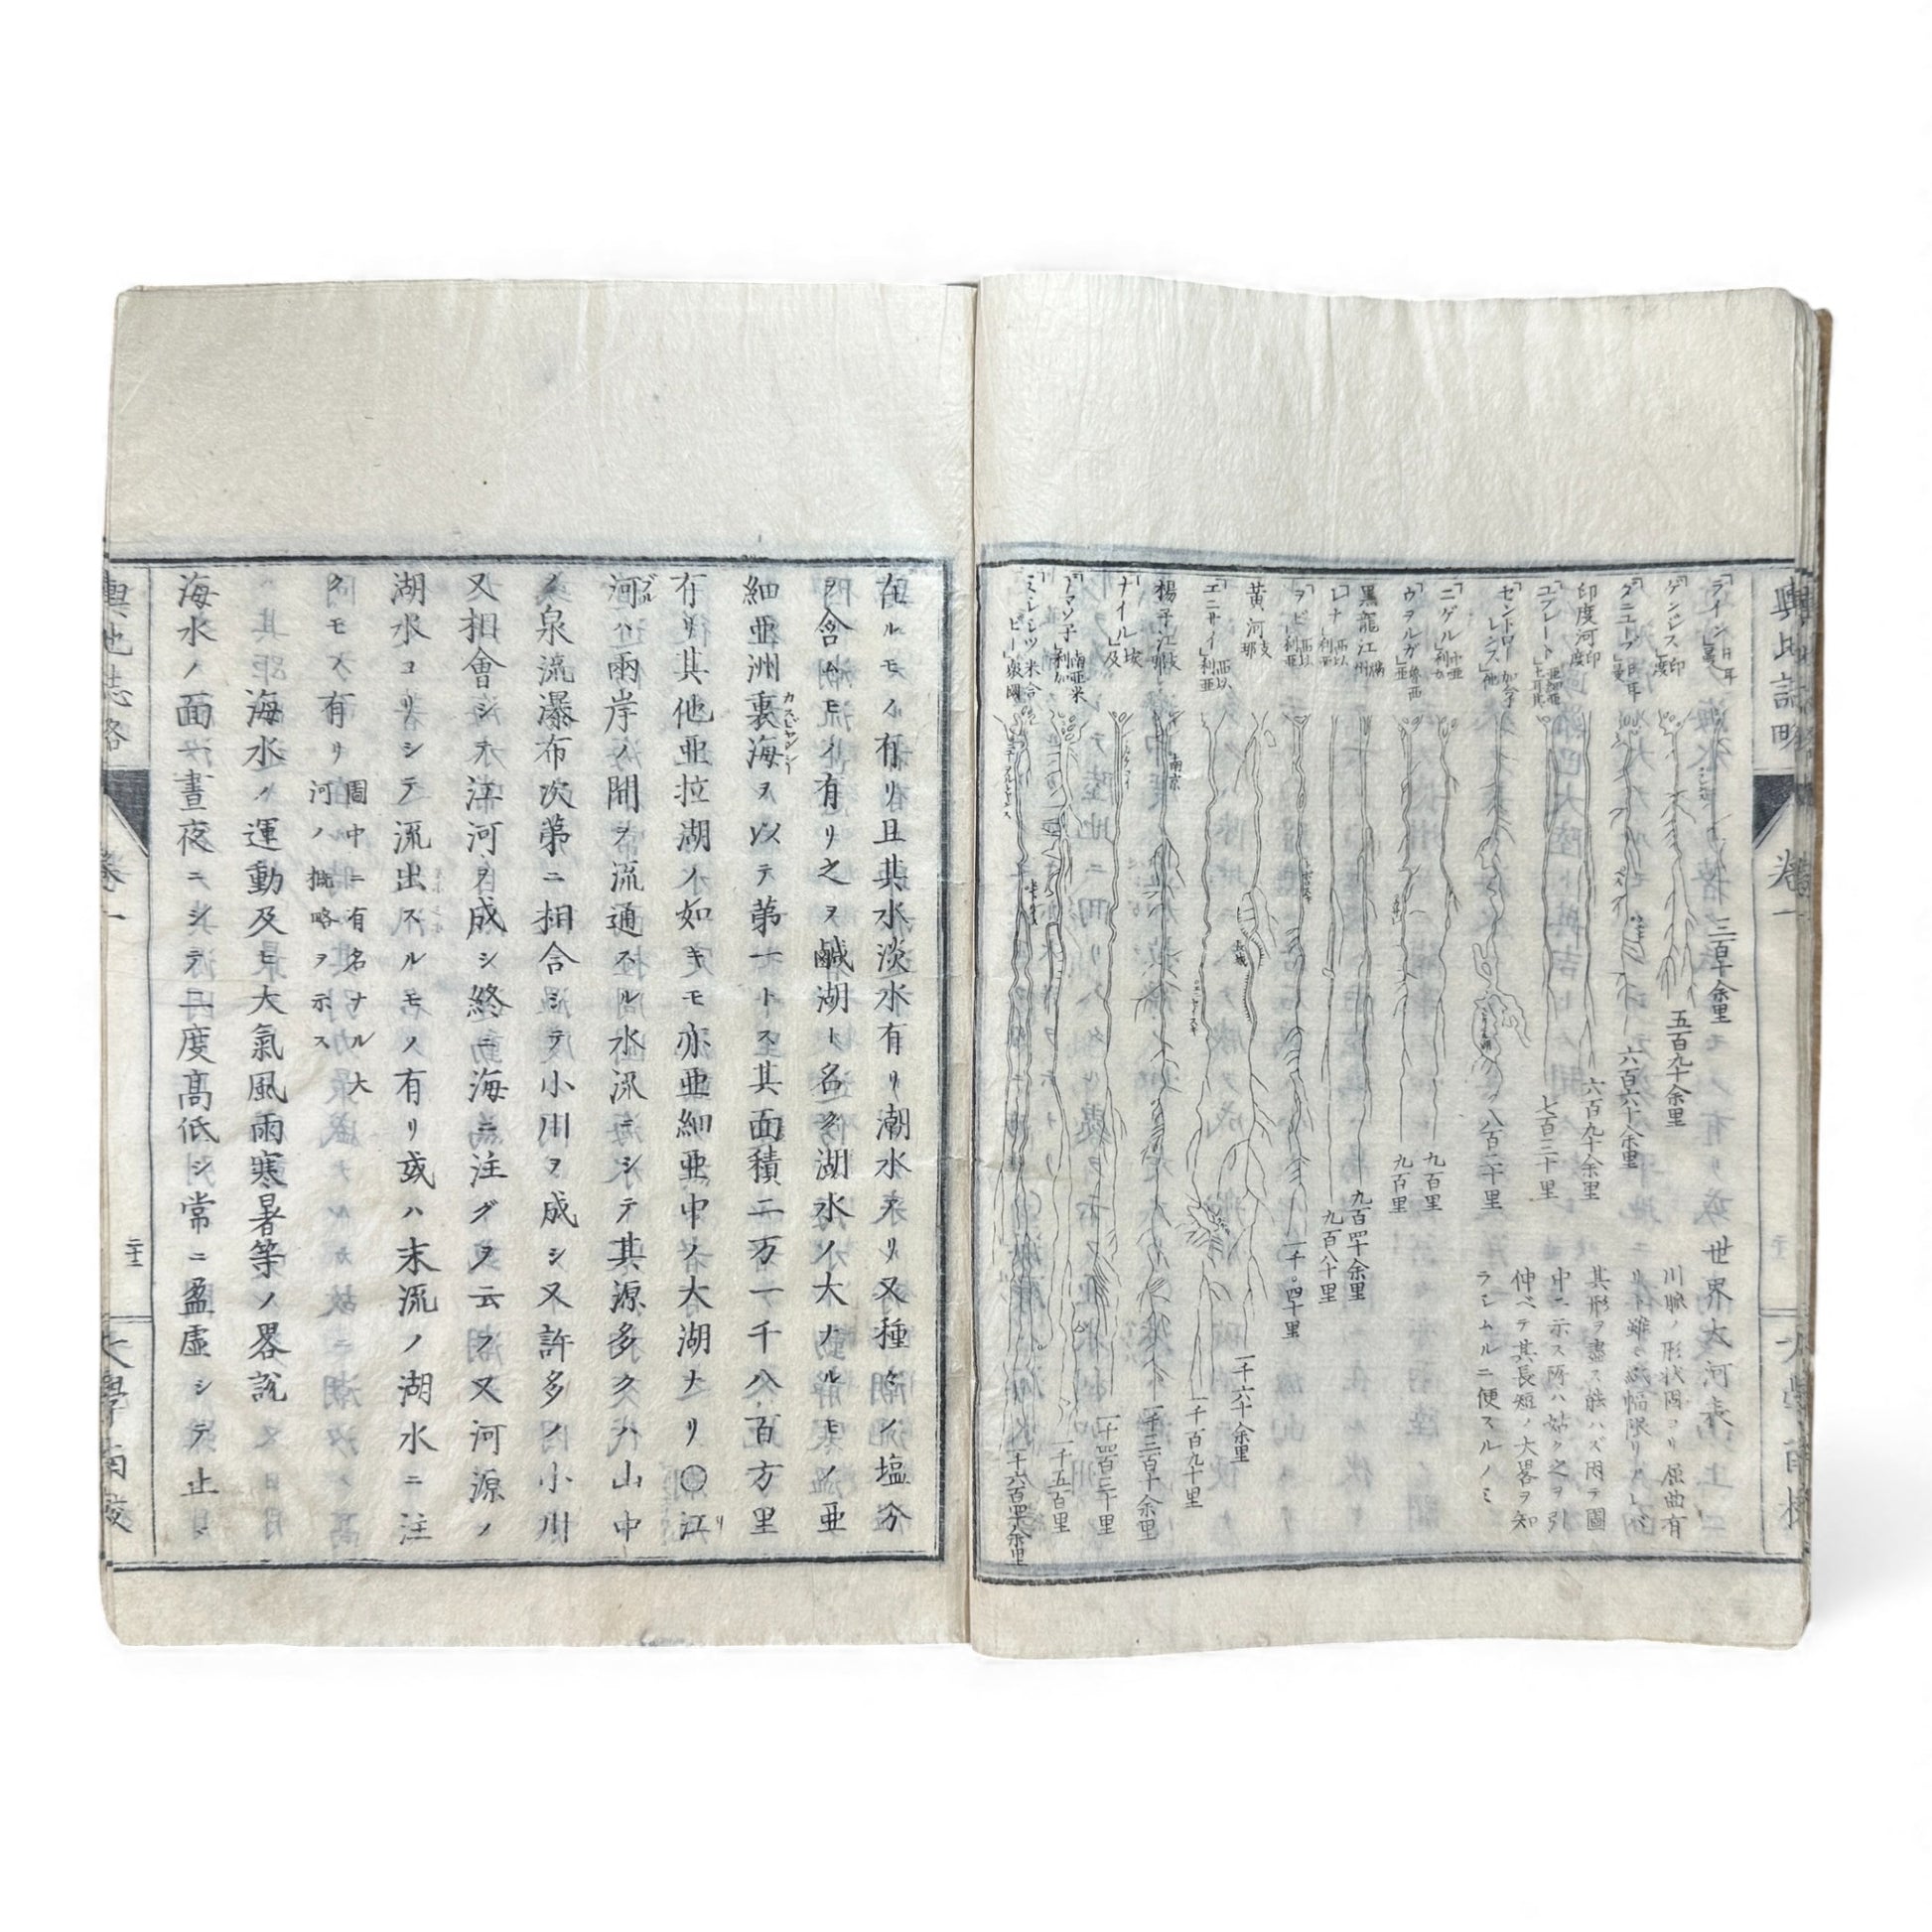 輿地誌略
卷一
大學南校
世界大河表
川脈ノ形状固ヨリ屈曲有
リト雖モ紙幅限リアレバ
其形ヲ盡ス能ハズ因テ圖
中ニ示ス所ハ姑ク之ヲ引
伸ベテ其長短ノ大畧ヲ知
ラシムルニ便スルノミ
ライン 日耳曼
三百余里
ゲンジス 印度
五百九十余里
ダニューブ 日耳曼
六百六十余里
印度河 印度
六百九十余里
ユフレート
七百三十里
セントローレンス 加拿他
八百二十里
ニゲル 中亜利加
九百里
ウヲルガ 魯西亜
九百里
黒龍江 滿州
九百四十余里
レナ 西以利亜
九百八十里
ヲビ 西以利亜
一千〇四十里
黄河 支那
長城
一千六十余里
エニサイ 西以利亜
一千百九十里
揚子江 支那
南京
一千三百十余里
ナイル 埃及
一千四百三十里
アマソ子 南亜米利加
一千五百里
ミシシッピー 米合衆國
一千六百四十八余里
在ルモノ有リ且其水淡水有リ潮水有リ又種々ノ塩分
ヲ含ムモノ有リ之ヲ鹹湖ト名ク湖水ノ大ナルモノハ亜
細亜洲裏海ヲ以テ第一トス其面積二万一千八百方里
カスピヤンシー
有リ其他亜拉湖ノ如キモ亦亜細亜中ノ大湖ナリ〇江
河ハ兩岸ノ間ヲ流通スル水流ニシテ其源多クハ山中
ノ泉流瀑布次第ニ相合シテ小川ヲ成シ又許多ノ小川
又相會シテ江河ヲ成シ終ニ海ニ注グヲ云フ又河源ノ
湖水ヨリシテ流出スルモノ有リ或ハ末流ノ湖水ニ注
クモノ有リ
圖中ニ有名ナル大
河ノ概略ヲ示ス
海水ノ運動及ヒ大氣風雨寒暑等ノ畧説
海水ノ面ハ晝夜ニシテ二度高低シ常ニ盈虚シテ止
輿地誌略
卷一
二十三
大學南校